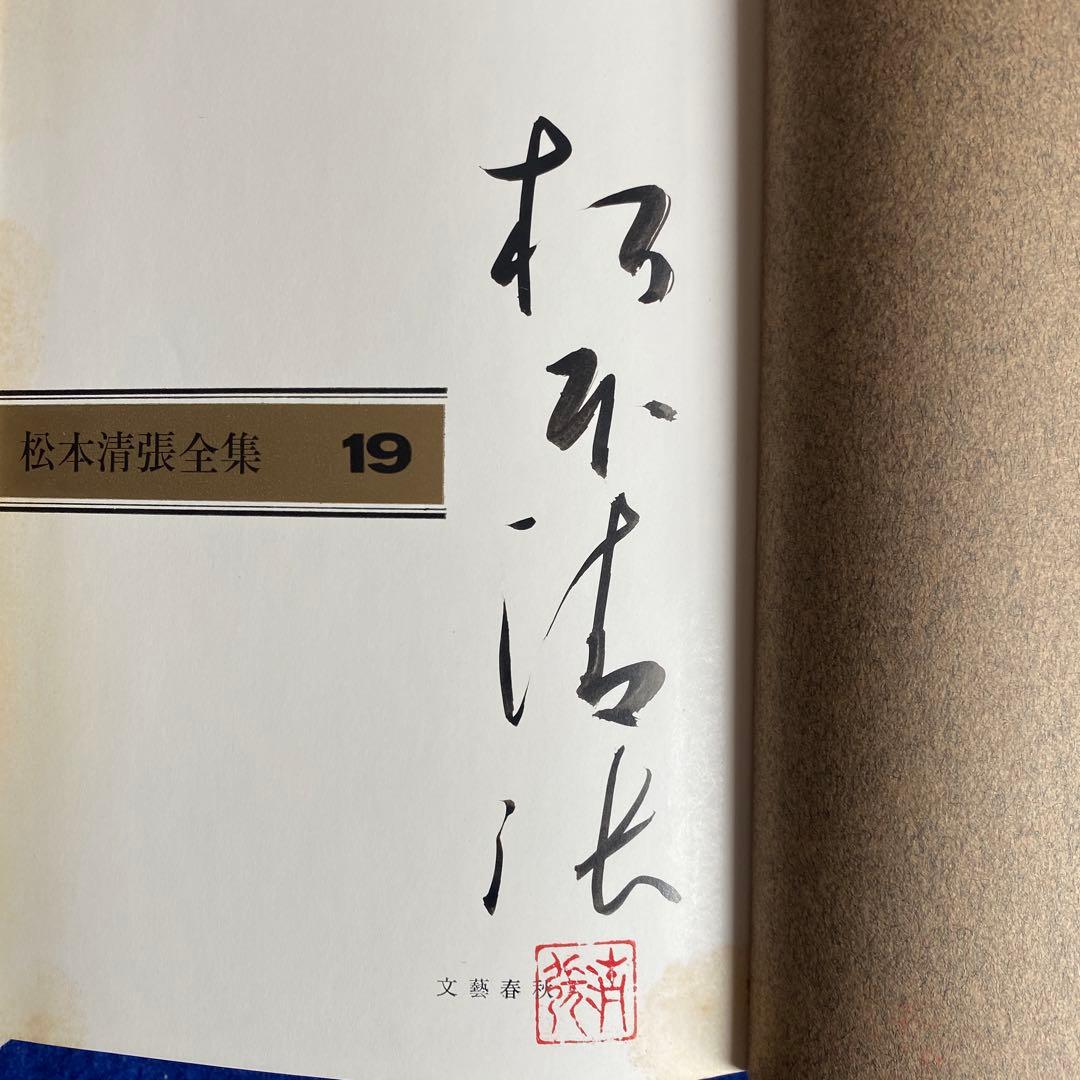 松本清張
松本清張全集 19
文藝春秋
清張